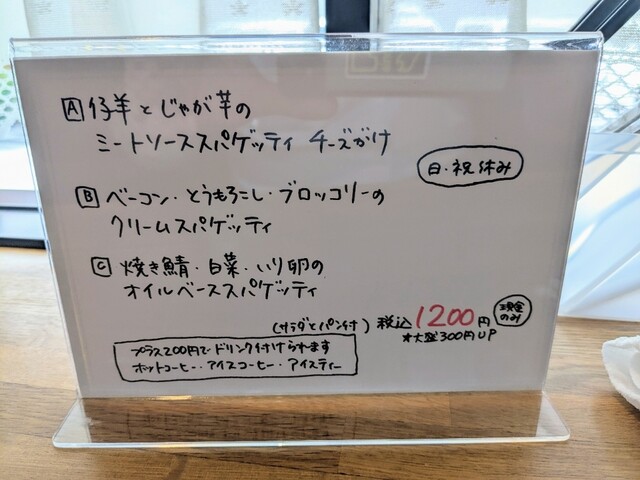 A 仔羊とじゃが芋の
ミートソーススパゲッティ チーズがけ
日・祝休み
B ベーコン・とうもろこし・ブロッコリーの
クリームスパゲッティ
C 焼き鯖・白菜・いり卵の
オイルベーススパゲッティ
(サラダとパン付) 税込1200円
現金
のみ
*大盛300円UP
プラス200円でドリンク付けられます
ホットコーヒー・アイスコーヒー・アイスティー